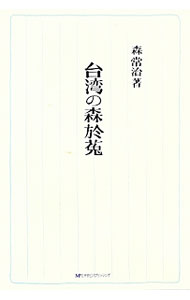 森 常治 著
台湾の森於菟